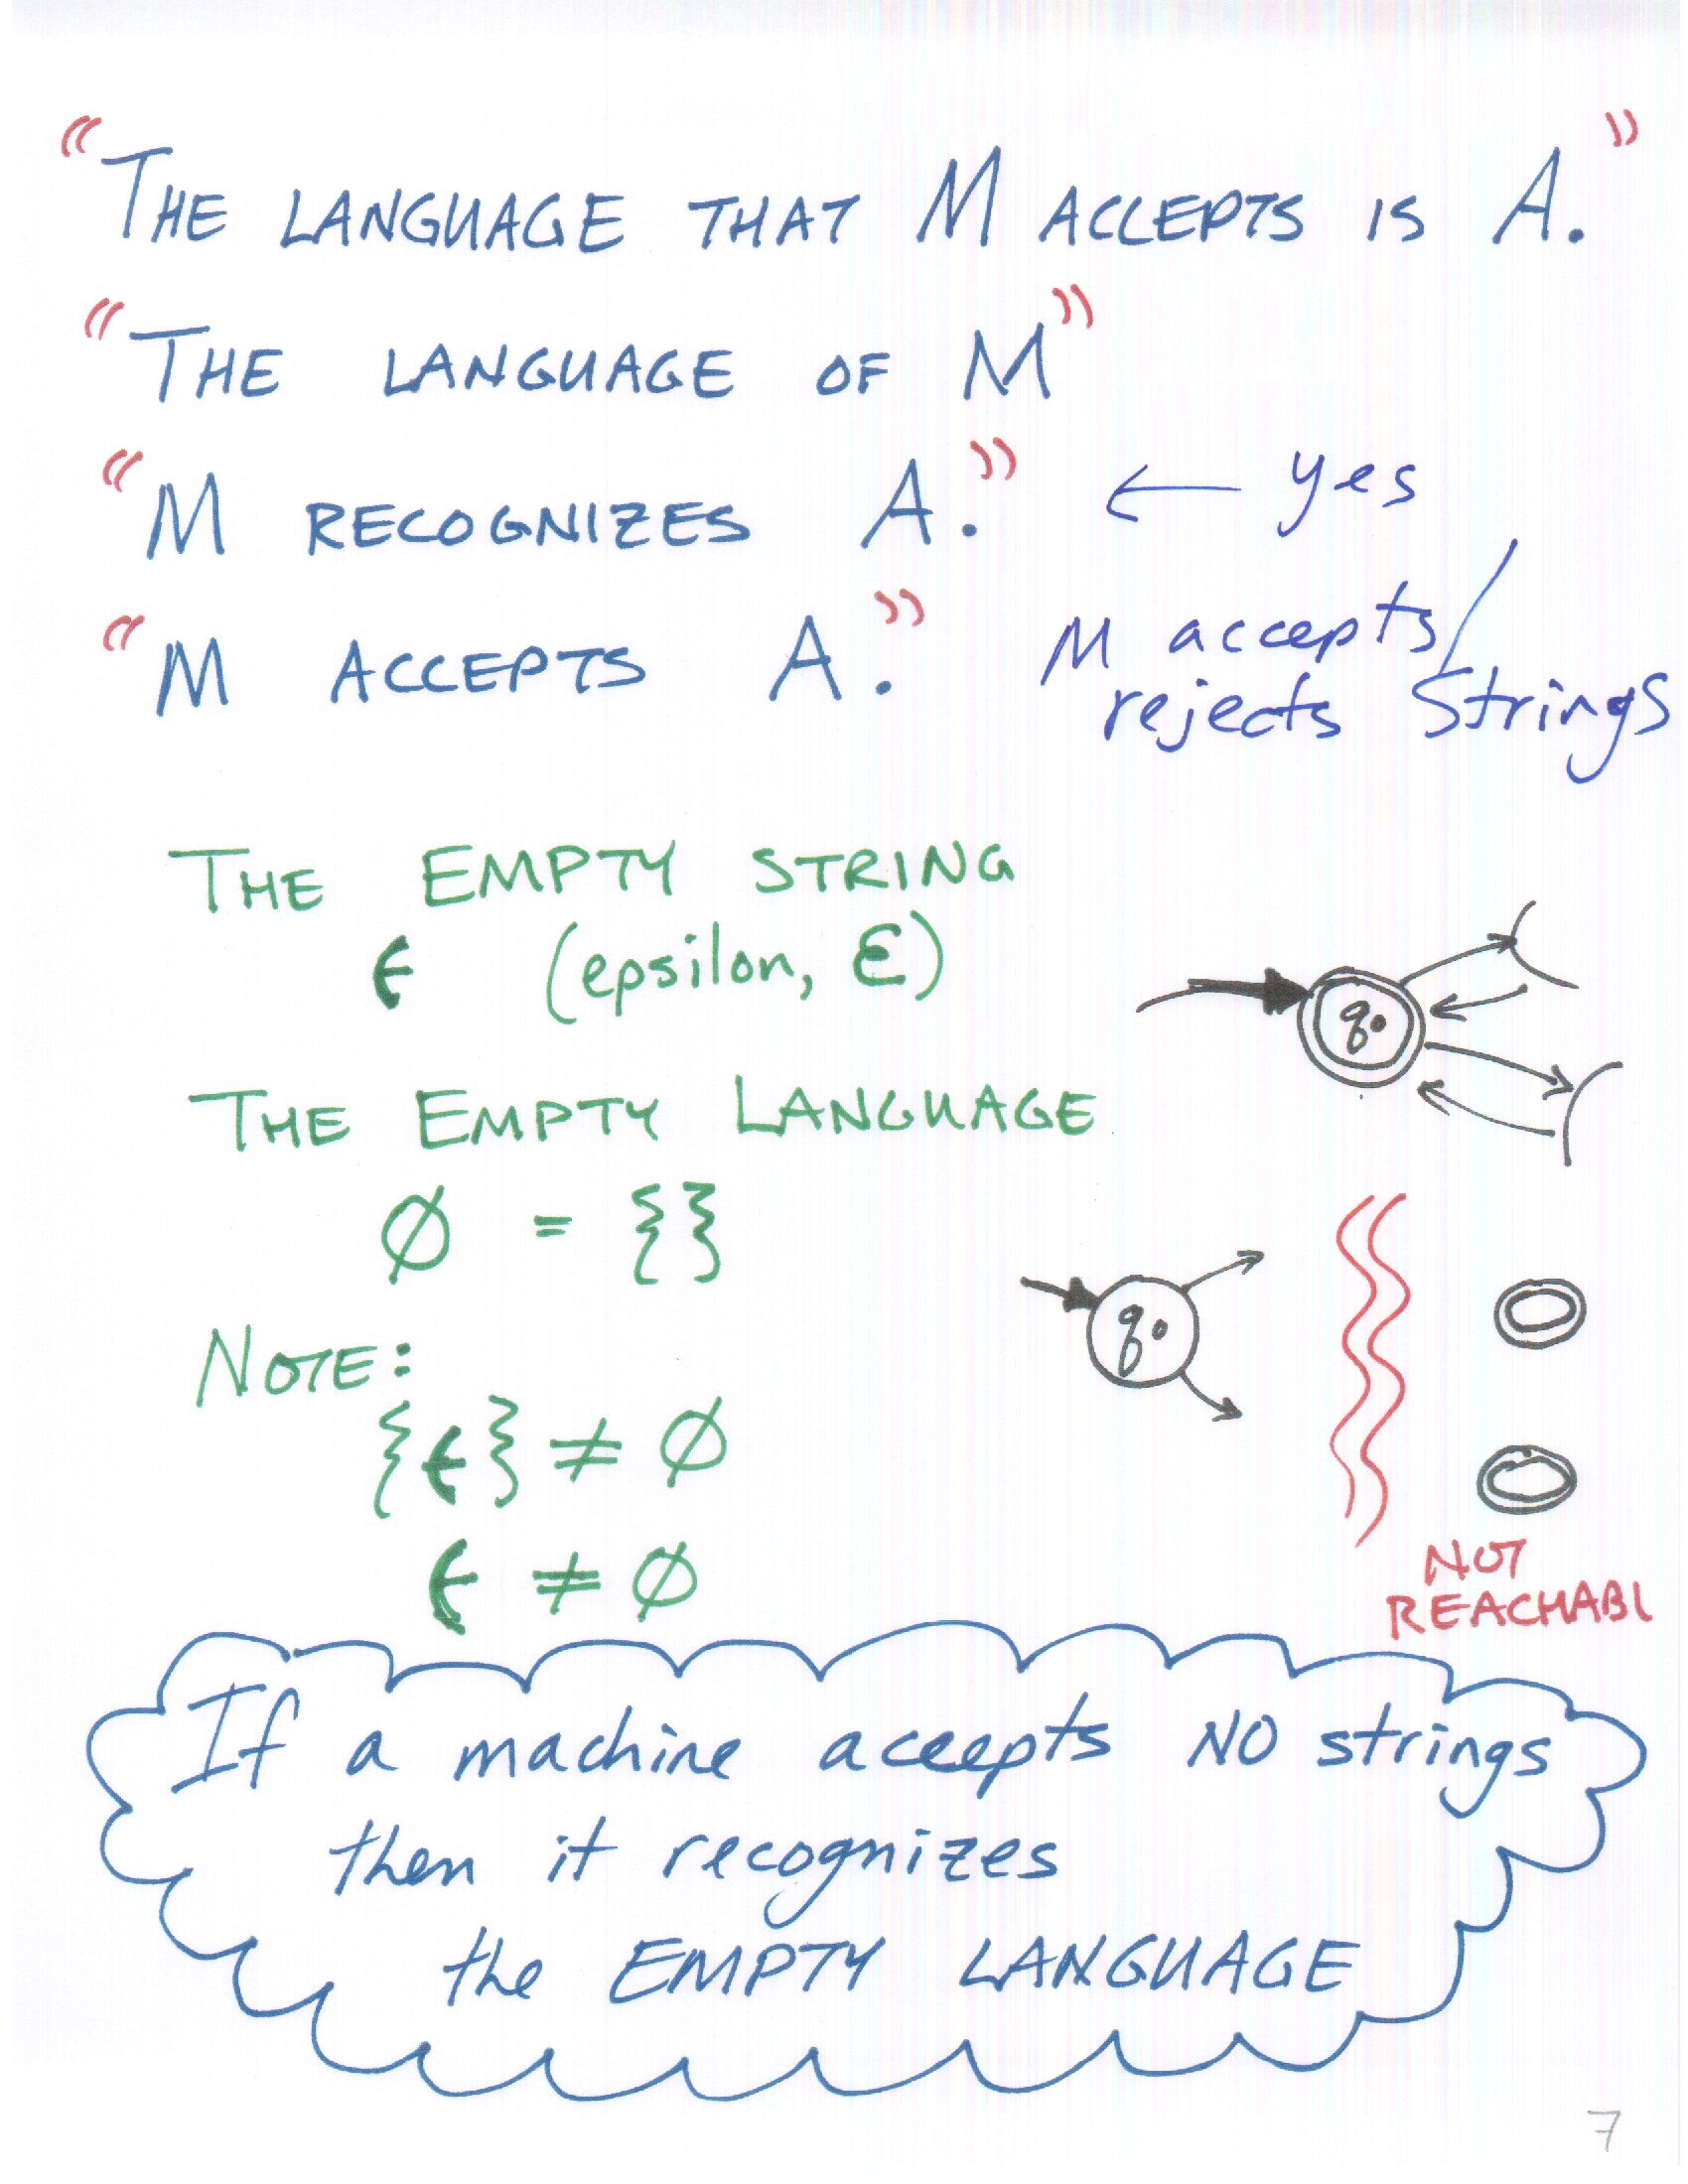 “THE LANGUAGE THAT M ACCEPTS IS A.”
“THE LANGUAGE OF M”
“M RECOGNIZES A.” ← yes
“M ACCEPTS A.” M accepts/
rejects Strings
THE EMPTY STRING
ϵ (epsilon, ε)
q0
THE EMPTY LANGUAGE
∅ = {}
q0
NOTE:
{ϵ} ≠ ∅
ϵ ≠ ∅
NOT
REACHABL
If a machine accepts NO strings
then it recognizes
the EMPTY LANGUAGE
7